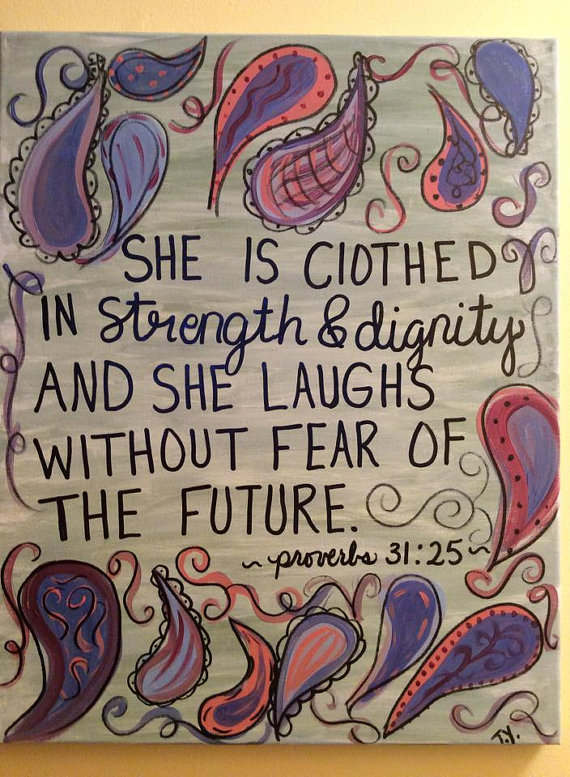 SHE IS ClOTHED
IN strength & dignity
AND SHE LAUGHS
WITHOUT FEAR OF
THE FUTURE.
~ proverbs 31:25 ~
T.Y.